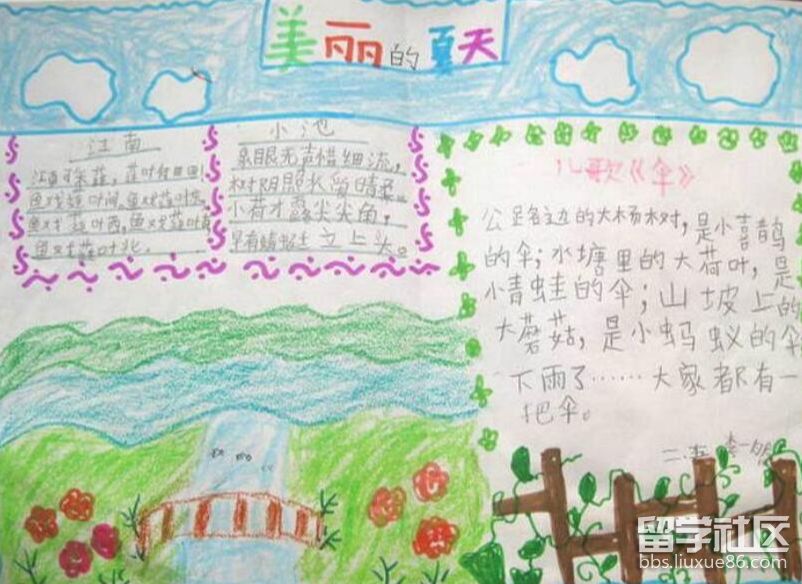 美丽的夏天
江南
江南可采莲，莲叶何田田，
鱼戏莲叶间，鱼戏莲叶东，
鱼戏莲叶西，鱼戏莲叶南，
鱼戏莲叶北。
小池
泉眼无声惜细流，
树阴照水留晴柔。
小荷才露尖尖角，
早有蜻蜓立上头。
儿歌《伞》
公路边的大杨树，是小喜鹊
的伞；水塘里的大荷叶，是
小青蛙的伞；山坡上的
大蘑菇，是小蚂蚁的伞
下雨了……大家都有一
把伞。
留学社区
bbs.liuxue86.com